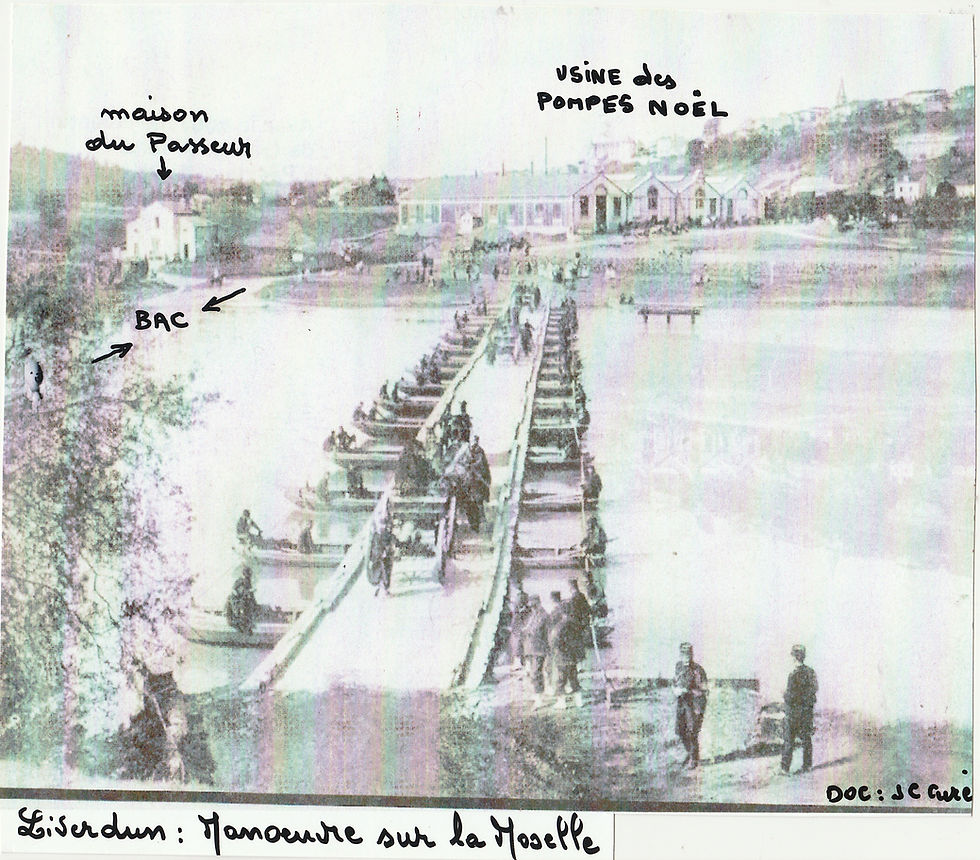 USINE des
POMPES NOËL
maison
du Passeur
BAC
DOC : JC Curé
Liverdun : Manoeuvre sur la Moselle